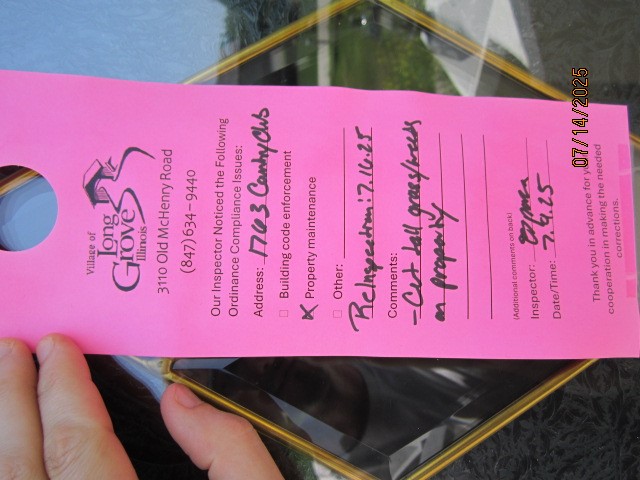 Village of
Long
Grove
Illinois
3110 Old McHenry Road
(847) 634-9440
Our Inspector Noticed the Following
Ordinance Compliance Issues:
Address: 1763 Country Club
Building code enforcement
Property maintenance
Other:
ReInspection: 7.16.25
Comments:
-Cut tall grass/weeds
on property
(Additional comments on back)
Inspector:
Date/Time: 7.9.25
Thank you in advance for your
cooperation in making the needed
corrections.
07/14/2025